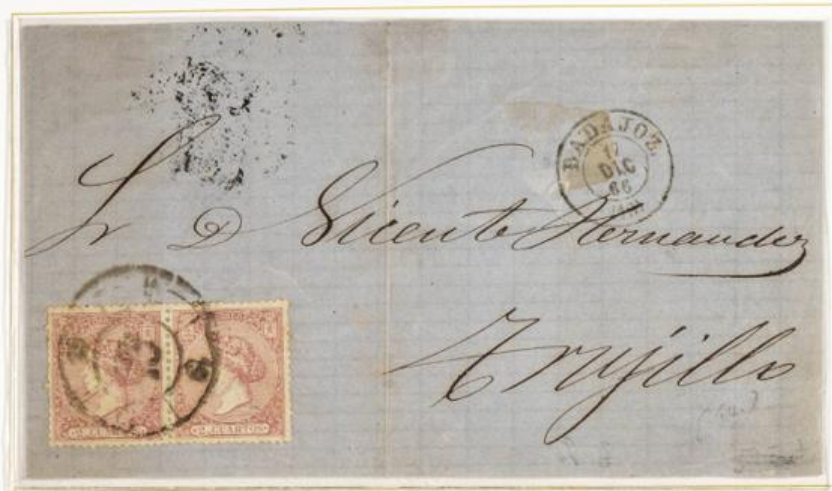 BADAJOZ
17
DIC
66
Sr D Vicente Hernandez
Trujillo
2 CUARTOS 2 CUARTOS